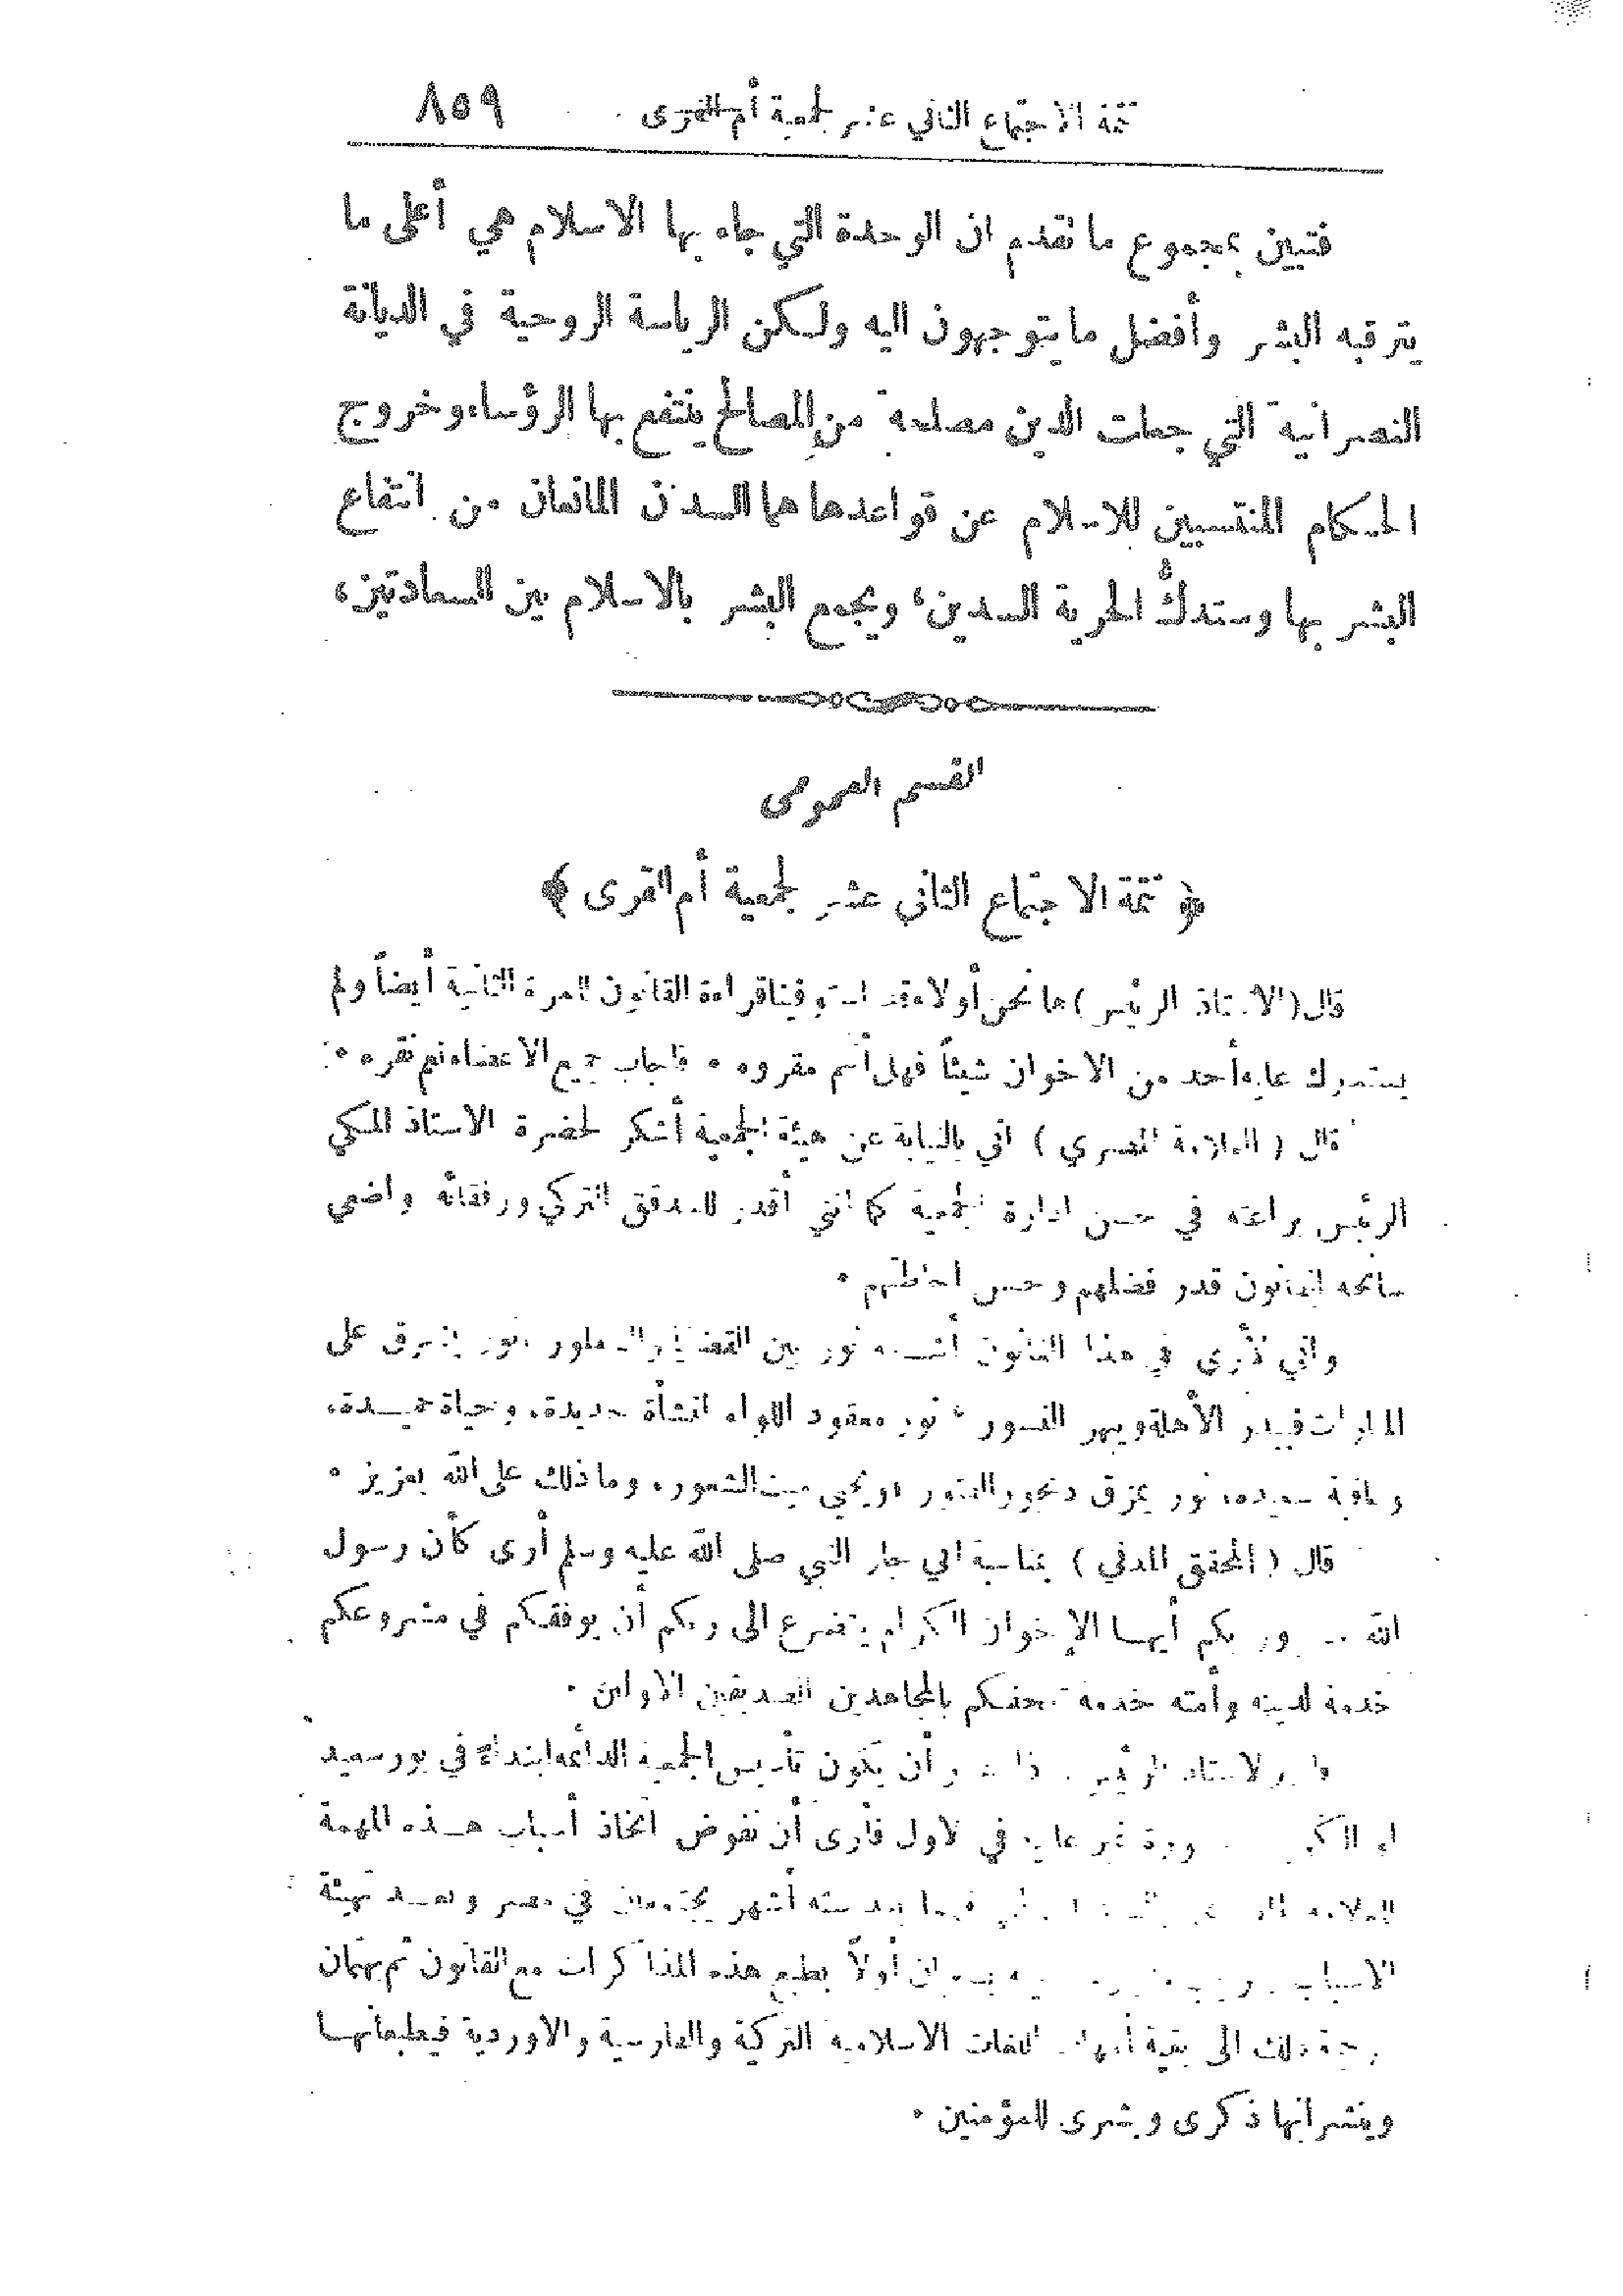 تتمة الاجتماع الثاني عشر لجمعية أم القرى ٨٥٩
فتبين بمجموع ما تقدم ان الوحدة التي جاء بها الاسلام هي أعلى ما
يترقبه البشر وأفضل ما يتوجهون اليه ولكن الرياسة الروحية في الديانة
النصرانية التي جعلت الدين مصلحة من المصالح ينتفع بها الرؤساء وخروج
الحكام المنتسبين للاسلام عن قواعدها هما السدان المانعان من انتفاع
البشر بها وستدكُّ الحرية السدين، ويجمع البشر بالاسلام بين السعادتين،
القسم العمومى
﴿ تتمة الاجتماع الثاني عشر لجمعية أم القرى ﴾
قال (الاستاذ الرئيس) ها نحن أولاء قد استوفينا قراءة القانون للمرة الثانية أيضاً ولم
يستدرك عليه أحد من الاخوان شيئاً فهل أنتم مقروه • فاجاب جميع الاعضاء نعم نقره •
قال ( العلامة المصري ) اني بالنيابة عن هيئة الجمعية أشكر لحضرة الاستاذ المكي
الرئيس براعته في حسن ادارة الجمعية كما انني أقدر للمدقق التركي ورفقائه واضعي
سانحه القانون قدر فضلهم وحسن احاطتهم •
واني لأرى في هذا القانون نور بين القضايا والسطور نور يشرق على
الأهلة ويبهر النسور ، نور معقود اللواء لنشأة جديدة، وحياة حميدة،
وعاقبة سعيدة، نور يمزق ديجور الفتور ، ويحيي ميت الشعور، وما ذلك على الله بعزيز •
قال ( المحقق المدني ) بمناسبة اني جار النبي صلى الله عليه وسلم أرى كأن رسول
الله بكم أيها الإخوان الكرام يتضرع الى ربكم أن يوفقكم في مشروعكم
خدمة لدينه وأمته خدمة تلحقكم بالمجاهدين الصديقين الاولين •
الاستاذ الرئيس أن يكون تأسيس الجمعية الدائمة ابتداءً في بور سعيد
او الكويت في الاول فأرى أن نفوض اتخاذ أسباب هذه المهمة
العلامة فيما بعد سته أشهر يجتمعان في مصر وبعد تهيئة
الاسباب أولاً بطبع هذه المذاكرات مع القانون ثم يهتمان
ذلك الى بقية أمهات اللغات الاسلامية التركية والفارسية والاوردية فيطبعانها
وينشرانها ذكرى وبشرى للمؤمنين •